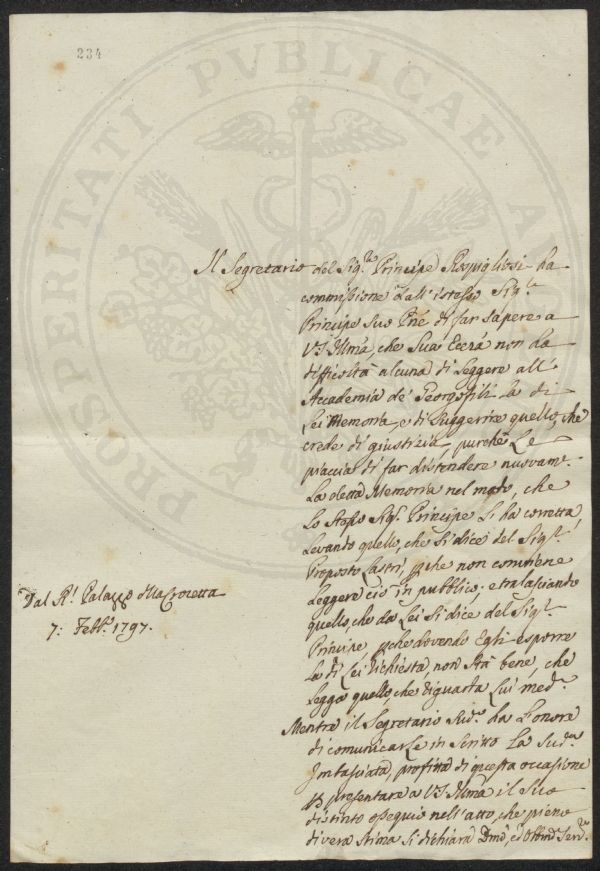 234
PROSPERITATI PUBLICAE
Il Segretario del Sig.re Principe Rospigliosi ha
commissione dall'istesso Sig.re
Principe Suo Pñe di far sapere a
VS Illma, che Sua Eccza non ha
difficoltà alcuna di leggere all'
Accademia de' Georgofili la di
Lei Memoria, e di suggerire quello, che
crede di giustizia, purchè Le
piaccia di far distendere nuovam.e
La detta Memoria nel modo, che
Lo stesso Sig.e Principe Si ha corretta,
levando quello, che si dice del Sig.e
Proposto Lastri, pche non conviene
leggere ciò in pubblico; e tralasciando
quello, che da Lei Si dice del Sig.e
Principe pche dovendo Egli esporre
la di Lei richiesta, non stà bene, che
legga quello, che riguarda Lui med.o
Mentre il Segretario Sud.o ha l'onore
di comunicarle in scritto la Sud.a
Imbasciata, profitta di questa occasione
p presentare a VS Illma il Suo
distinto ossequio nell'atto, che pieno
di vera stima Si dichiara Dmo, ed Obbmo Serv.e
Dal R.l Palazzo della Crocetta
7: Febb.o 1797.